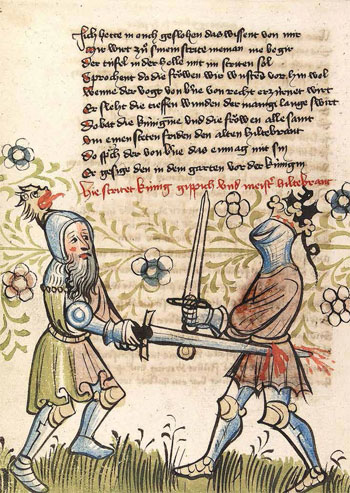 Ich hette in ouch geslohen das wissent von mir
wirt zů sime strite nieman me begir
Der tüfel in der holle mit im striten sol
Sprochent do die fröwen wir wustend vor hin wol
Wenne der voge von berne von recht erzürnet wirt
Er sleht die tieffen wunden der mangē lange swirt
Do bat die künigine und die fröwen alle sant
Umb einen steten friden den alten hiltebrant
Do sp͛ch der von berne das en mag nit sin
Er gesige den in dem garten vor der künigin
Hie stritet künig gyppich und meist͛ hiltebrant